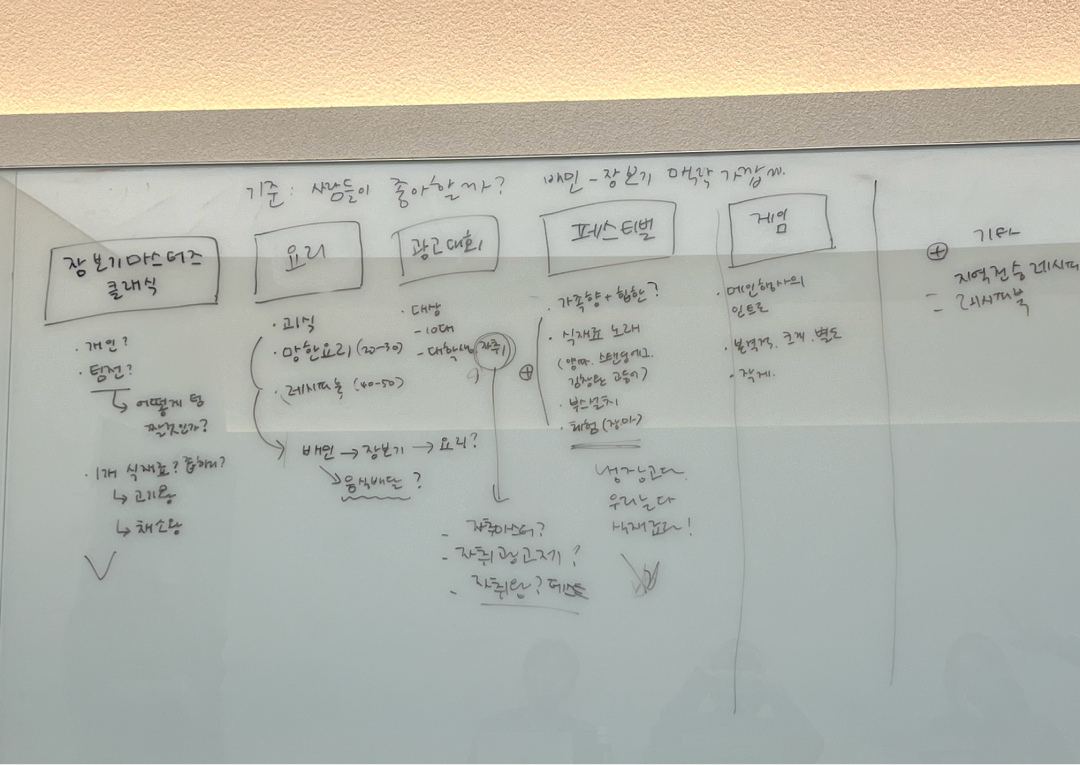 기준: 사람들이 좋아할까? 배민-장보기 맥락 가깝게.
장보기마스터즈
클래식
· 개인?
· 팀전?
↳ 어떻게 팀
짤것인가?
· 1개 식재료?
↳ 고기왕
↳ 채소왕
요리
· 괴식
· 망한요리 (20-30)
· 레시피북 (40-50)
배민 → 장보기 → 요리?
음식배달?
광고대회
· 대상
- 10대
- 대학생
자취
- 자취마스터?
- 자취 광고제?
- 자취왕? 테스트
페스티벌
· 가족향 + 힙한?
· 식재료 노래
(양파. 스탠딩에그.
김창완 고등어)
· 부스설치
· 체험 (장마)
냉장고다
우리는다
식재료다!
게임
· 메인행사의
인트로
· 본격적. 크게. 별도
· 작게.
⊕ 기타
지역전승레시피
= 레시피북